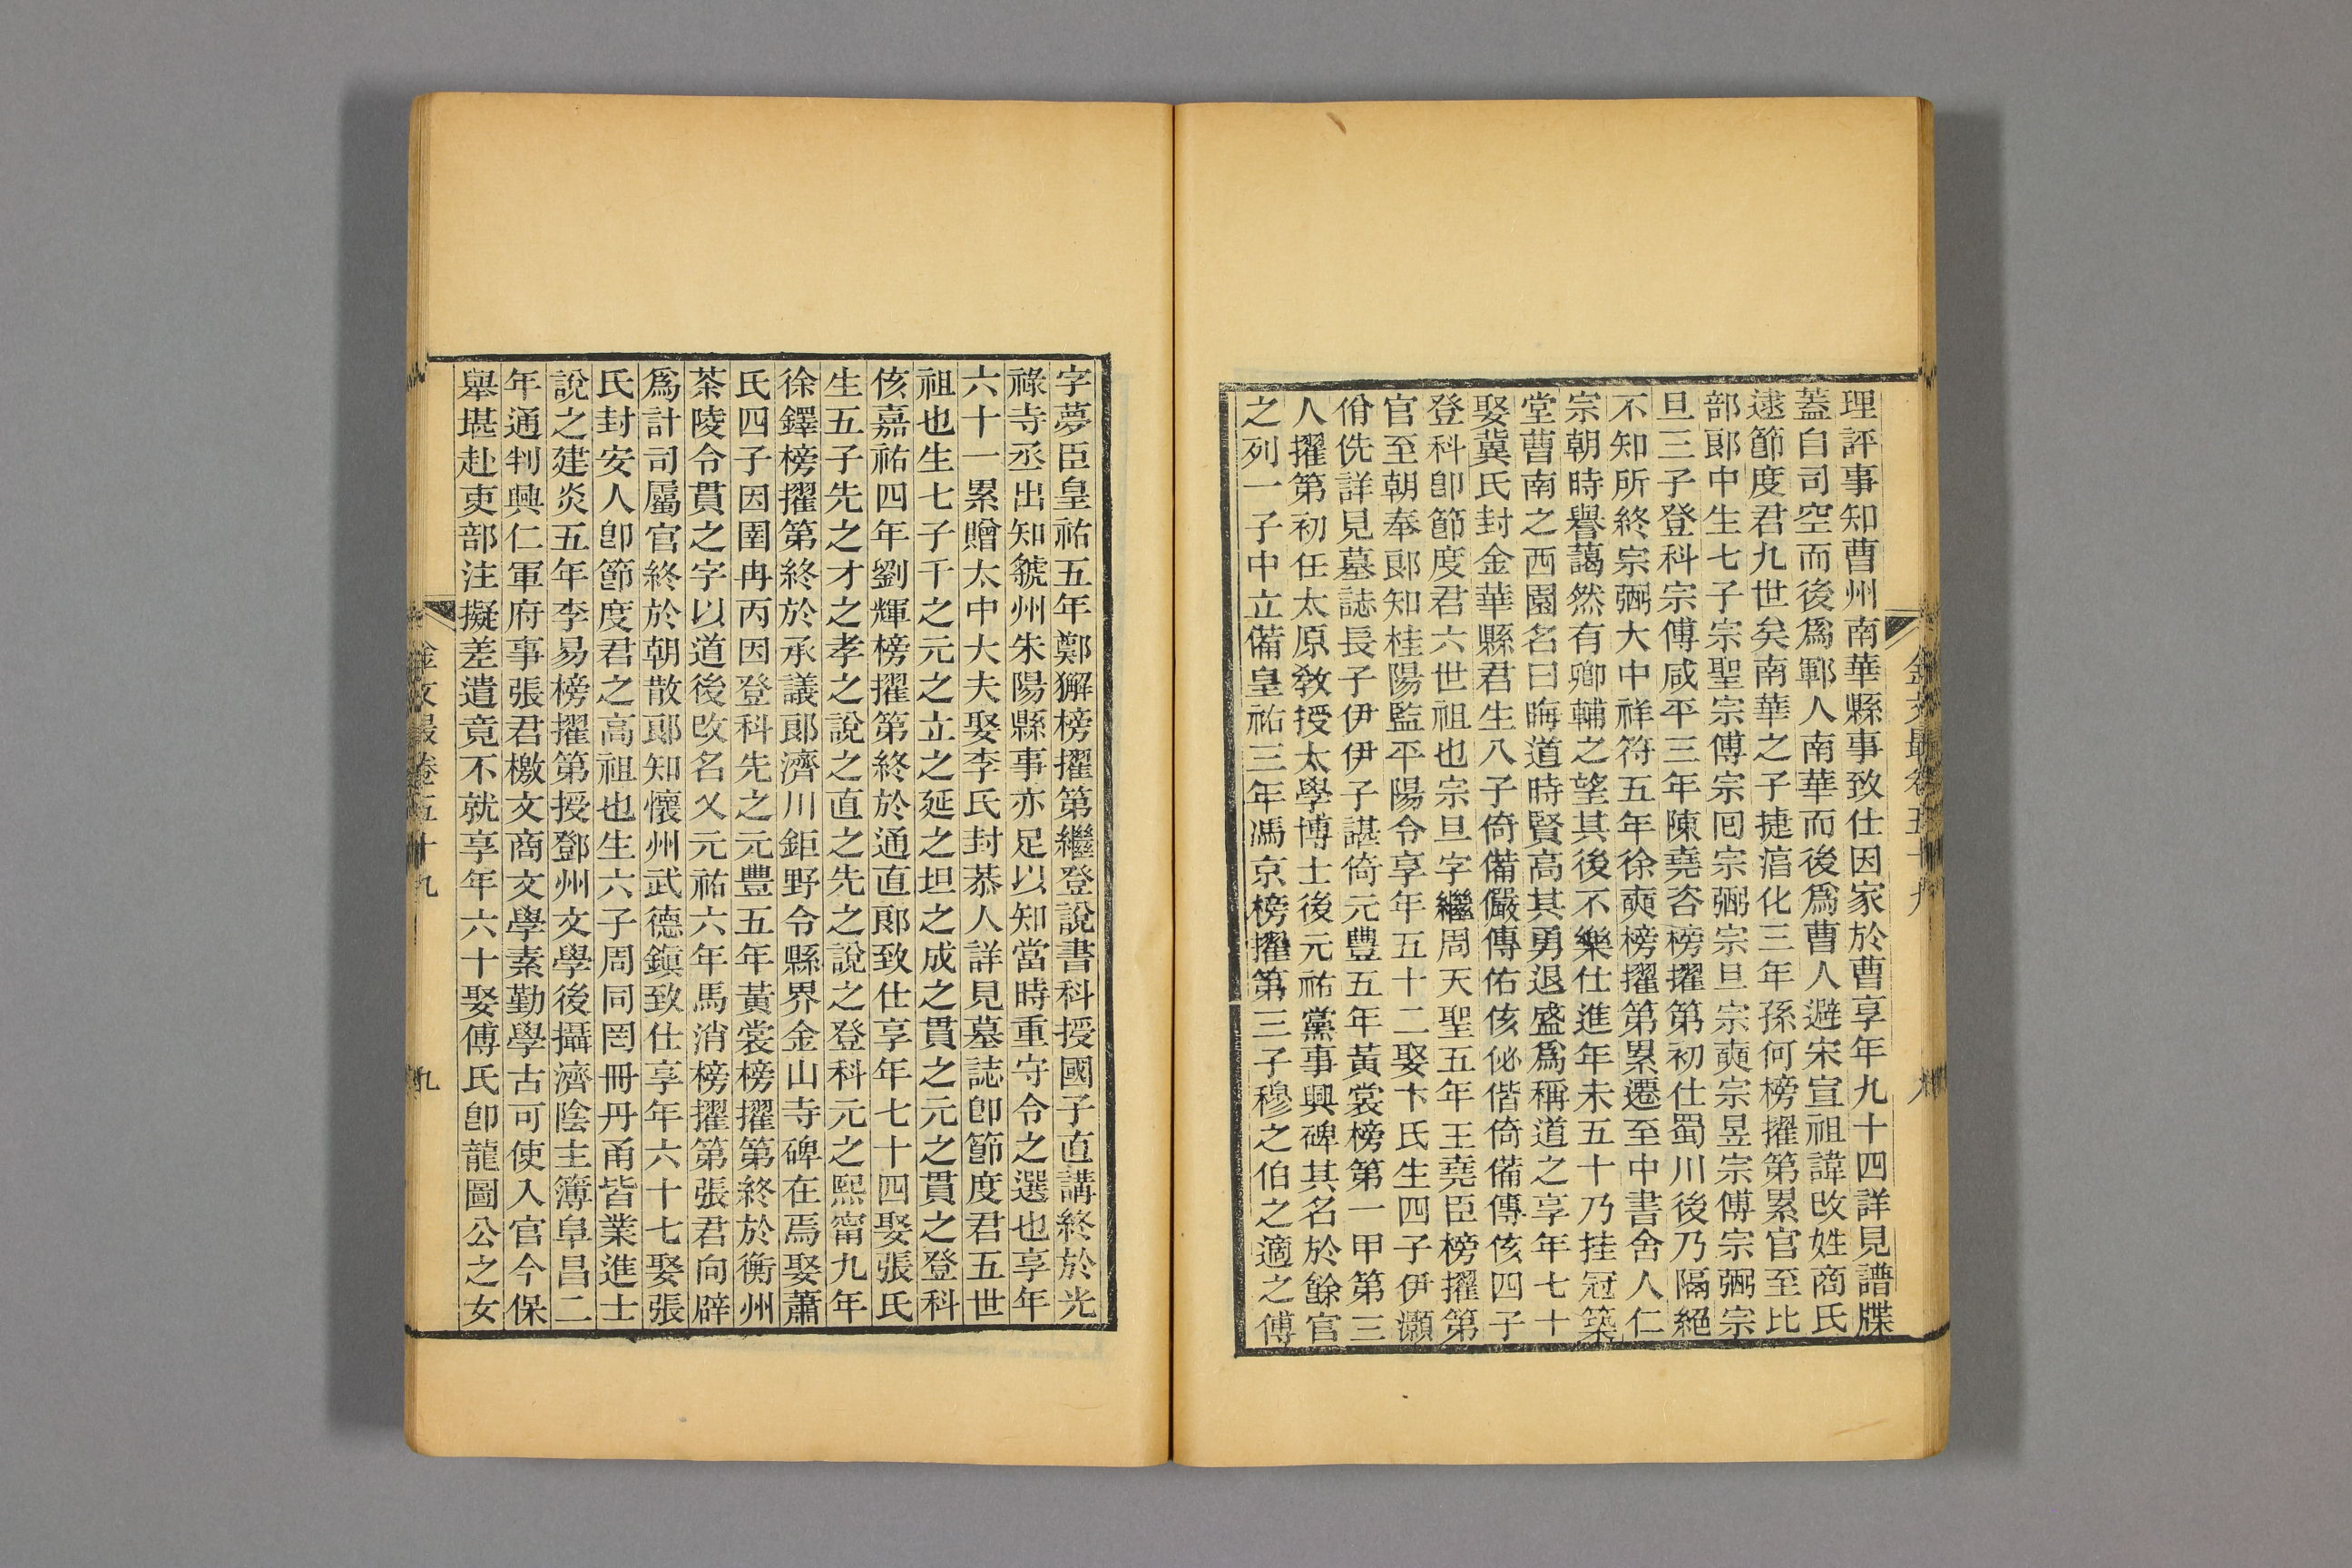 理評事知曹州南華縣事致仕因家於曹享年九十四詳見譜牒
蓋自司空而後爲鄆人南華而後爲曹人避宋宣祖諱改姓商氏
逮節度君九世矣南華之子捷淯化三年孫何榜擢第累官至比
部郎中生七子宗聖宗傅宗回宗弼宗旦宗奭宗昱宗傅宗弼宗
旦三子登科宗傅咸平三年陳堯咨榜擢第初仕蜀川後乃隔絕
不知所終宗弼大中祥符五年徐奭榜擢第累遷至中書舍人仁
宗朝時譽藹然有卿輔之望其後不樂仕進年未五十乃挂冠築
堂曹南之西園名曰晦道時賢高其勇退盛爲稱道之享年七十
娶冀氏封金華縣君生八子倚備儼傳佑侅佖偕倚備傳侅四子
登科卽節度君六世祖也宗旦字繼周天聖五年王堯臣榜擢第
官至朝奉郎知桂陽監平陽令享年五十二娶卞氏生四子伊灝
佾侁詳見墓誌長子伊伊子諶倚元豐五年黃裳榜第一甲第三
人擢第初任太原敎授太學博士後元祐黨事興碑其名於餘官
之列一子中立備皇祐三年馮京榜擢第三子穆之伯之適之傅
金文最卷五十九
字夢臣皇祐五年鄭獬榜擢第繼登說書科授國子直講終於光
祿寺丞出知虢州朱陽縣事亦足以知當時重守令之選也享年
六十一累贈太中大夫娶李氏封恭人詳見墓誌卽節度君五世
祖也生七子千之元之立之延之坦之成之貫之元之貫之登科
侅嘉祐四年劉輝榜擢第終於通直郎致仕享年七十四娶張氏
生五子先之才之孝之說之直之先之說之登科元之熙甯九年
徐鐸榜擢第終於承議郎濟川鉅野令縣界金山寺碑在焉娶蕭
氏四子因圉冉丙因登科先之元豐五年黃裳榜擢第終於衡州
茶陵令貫之字以道後改名乂元祐六年馬涓榜擢第張君向辟
爲計司屬官終於朝散郎知懷州武德鎭致仕享年六十七娶張
氏封安人卽節度君之高祖也生六子周同罔冊丹甬皆業進士
說之建炎五年李易榜擢第授鄧州文學後攝濟陰主簿阜昌二
年通判興仁軍府事張君檄文商文學素勤學古可使入官今保
舉堪赴吏部注擬差遣竟不就享年六十娶傅氏卽龍圖公之女
金文最卷五十九
九